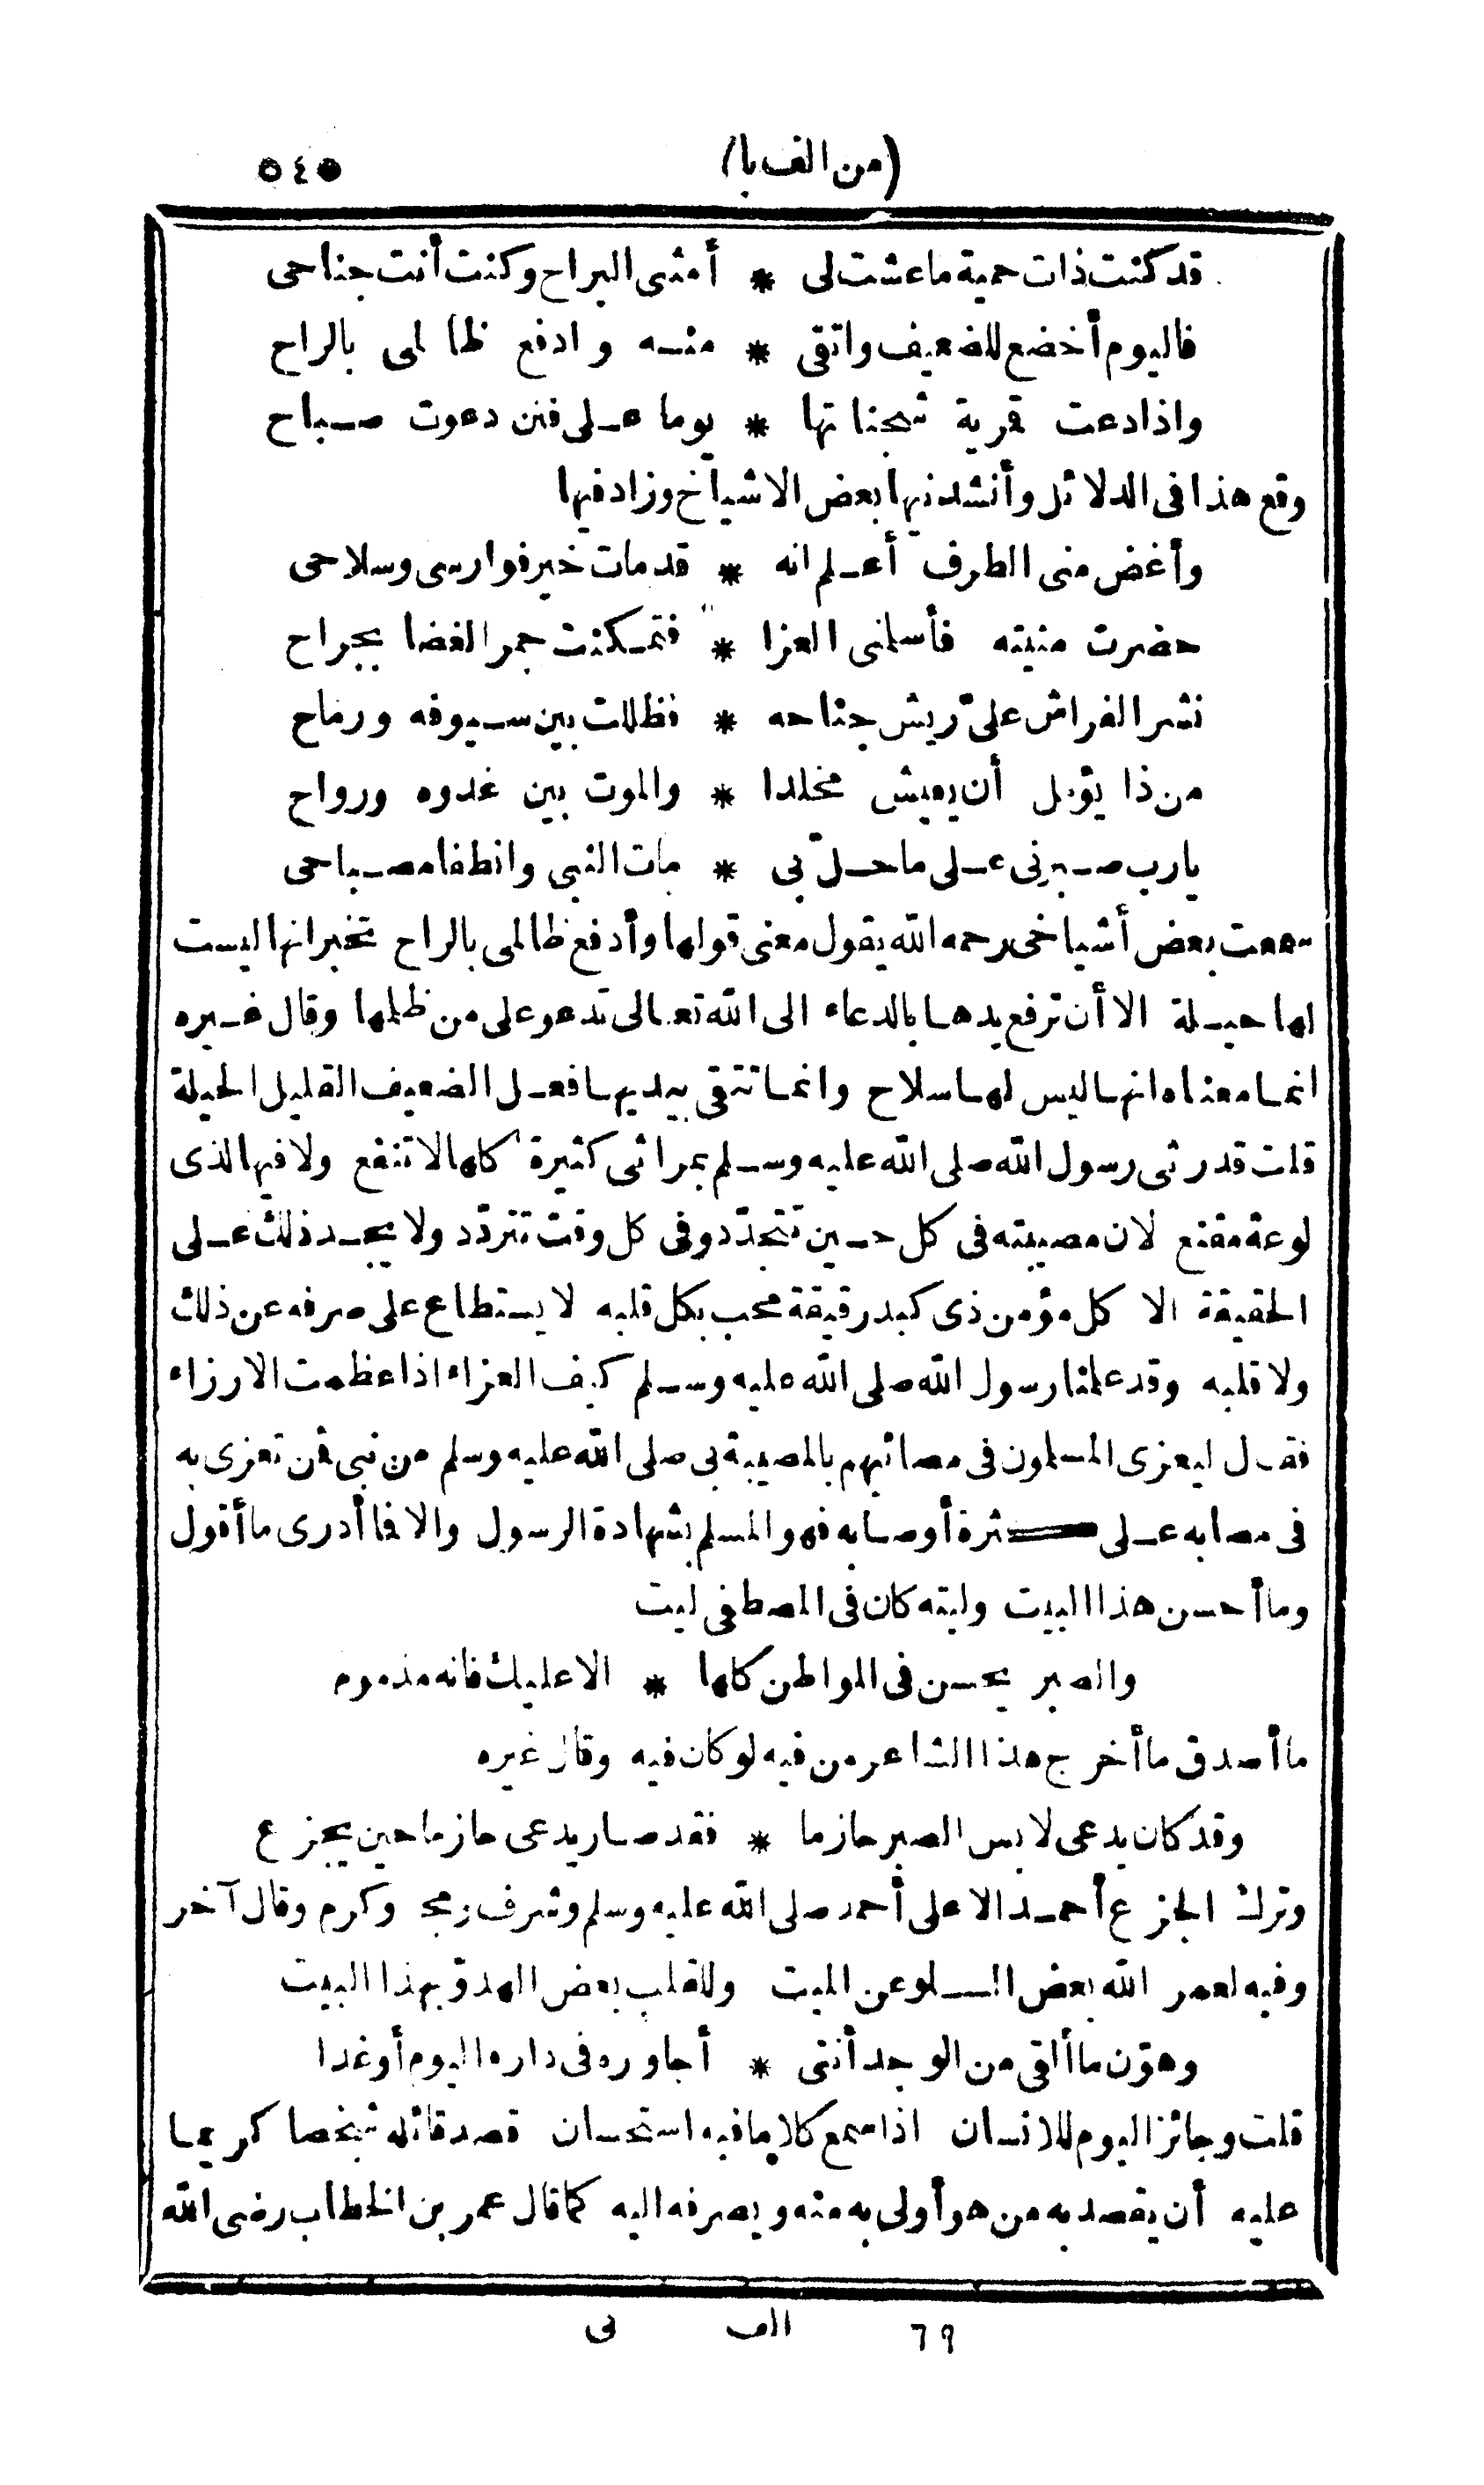 (من الف با)
٥٤٥
قد كنت ذات حمية ما عشت لى * أمشى البراح وكنت أنت جناحى
فاليوم أخضع للضعيف واتقى * منه وادفع ظالمى بالراح
واذا دعت قرية شجنا تها * يوما على فنن دعوت صباح
وقع هذا فى الدلائل وأنشدنيها بعض الاشياخ وزاد فيها
وأغض منى الطرف أعلم انه * قد مات خير فوارسى وسلاحى
حضرت منيته فأسلمنى العزا * فتمكنت جمر الغضا بجراح
نشر الغراش علىّ ريش جناحه * فظللت بين سيوفه ورماح
من ذا يؤمل أن يعيش مخلدا * والموت بين غدوه ورواح
يا رب صبرنى على ما حلّ بى * مات النبى وانطفا مصباحى
سمعت بعض أشياخى رحمه الله يقول معنى قولها وأدفع ظالمى بالراح تخبرانها ليست
لها حيلة الا أن ترفع يدها بالدعاء الى الله تعالى تدعو على من ظلمها وقال غيره
انما معناه انها ليس لها سلاح وانما تتقى بيديها فعل الضعيف القليل الحيلة
قلت قد رثى رسول الله صلى الله عليه وسلم بمراثى كثيرة كلها لا تنفع ولا فيها لذى
لوعة مقنع لان مصيبته فى كل حين تتجدّد وفى كل وقت تتردّد ولا يجد ذلك على
الحقيقة الا كل مؤمن ذى كبد رقيقة محب بكل قلبه لا يستطاع على صرفه عن ذلك
ولا قلبه وقد علمنا رسول الله صلى الله عليه وسلم كيف العزاء اذا عظمت الارزاء
فقال ليعزى المسلمون فى مصائبهم بالمصيبة بى صلى الله عليه وسلم من نبى فمن تعزى به
فى مصابه على كثرة أوصابه فهو المسلم بشهادة الرسول والا فما أدرى ما أقول
وما أحسن هذا البيت وليته كان فى المصطفى ليت
والصبر يحسن فى المواطن كلها * الا عليك فانه مذموم
ما أصدق ما أخرج هذا الشاعر من فيه لو كان فيه وقال غيره
وقد كان يدعى لابس الصبر حازما * فقد صار يدعى حازما حين يجزع
وترك الجزع أحمد الا على أحمد صلى الله عليه وسلم وشرف ومجد وكرم وقال آخر
وفيه لعمر الله بعض السلو عن الميت وللقلب بعض الهدوّ بهذا البيت
وهوّن ما ألقى من الوجد أننى * أجاوره فى داره اليوم أو غدا
قلت وجائز اليوم للانسان اذا سمع كلاما فيه استحسان قصد قائله شخصا كريما
عليه أن يقصد به من هو أولى به منه ويصرفه اليه كما قال عمر بن الخطاب رضى الله
٦٩ الف نى